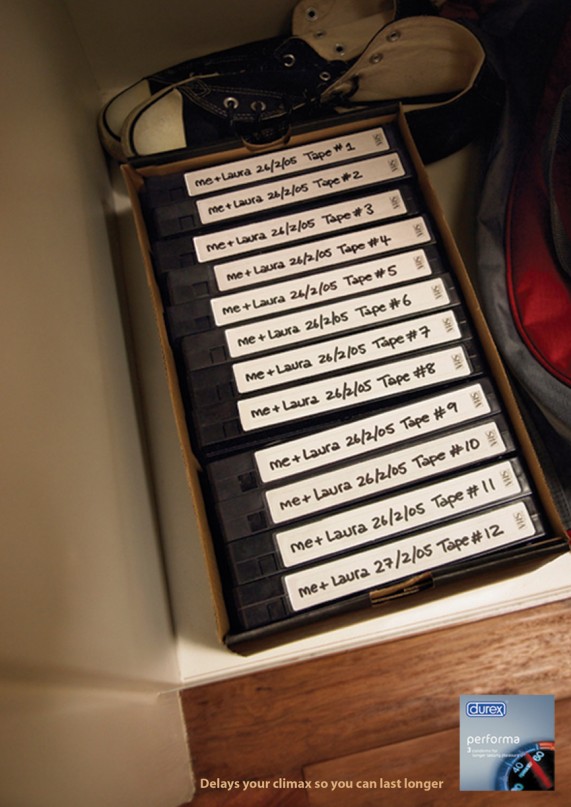 me + Laura 26/2/05 Tape #1
VHS
me + Laura 26/2/05 Tape #2
VHS
me + Laura 26/2/05 Tape #3
VHS
me + Laura 26/2/05 Tape #4
VHS
me + Laura 26/2/05 Tape #5
VHS
me + Laura 26/2/05 Tape #6
VHS
me + Laura 26/2/05 Tape #7
VHS
me + Laura 26/2/05 Tape #8
VHS
me + Laura 26/2/05 Tape #9
VHS
me + Laura 26/2/05 Tape #10
VHS
me + Laura 26/2/05 Tape #11
VHS
me + Laura 27/2/05 Tape #12
VHS
durex
performa
3
40
60
Delays your climax so you can last longer